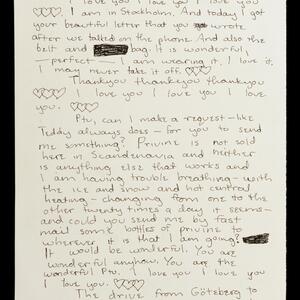 I love you I love you I love
you ♡♡♡. I am in Stockholm. And today I got
your beautiful letter that you wrote
after we talked on the phone. And also the
belt and bag. It is wonderful,
—perfect— I am wearing it. I love it.
I may never take it off. ♡♡♡
Thankyou thankyou thankyou
♡♡♡ I love you I love you I love
you. ♡♡♡
Ptu, can I make a request—like
Teddy always does—for you to send
me something? Privine is not sold
here in Scandenavia and neither
is anything else that works and
I am having trouble breathing—with
the ice and snow and hot central
heating—changing from one to the
other twenty times a day it seems—
and could you send me by fast
mail some bottles of privine to
wherever it is that I am going?
It would be wonderful. You are
wonderful anyhow. You are the
wonderful Ptu. I love you I love you
I love you. ♡♡♡
The drive from Götsberg to